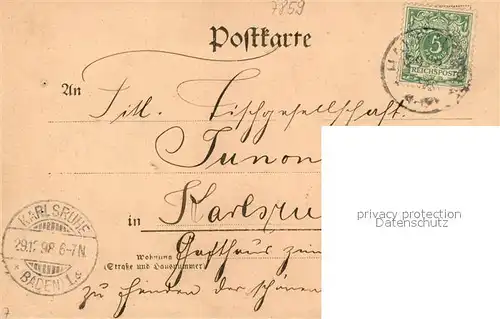 7859
Postkarte
5
REICHSPOST
An Titl. Tischgesellschaft.
Junon
in Karlsru
privacy protection
Datenschutz
KARLSRUHE
29.12.98 6-7N.
(BADEN) 1.a
Wohnung Gasthaus zum
(Straße und Hausnummer)
zu Händen der schönen
7